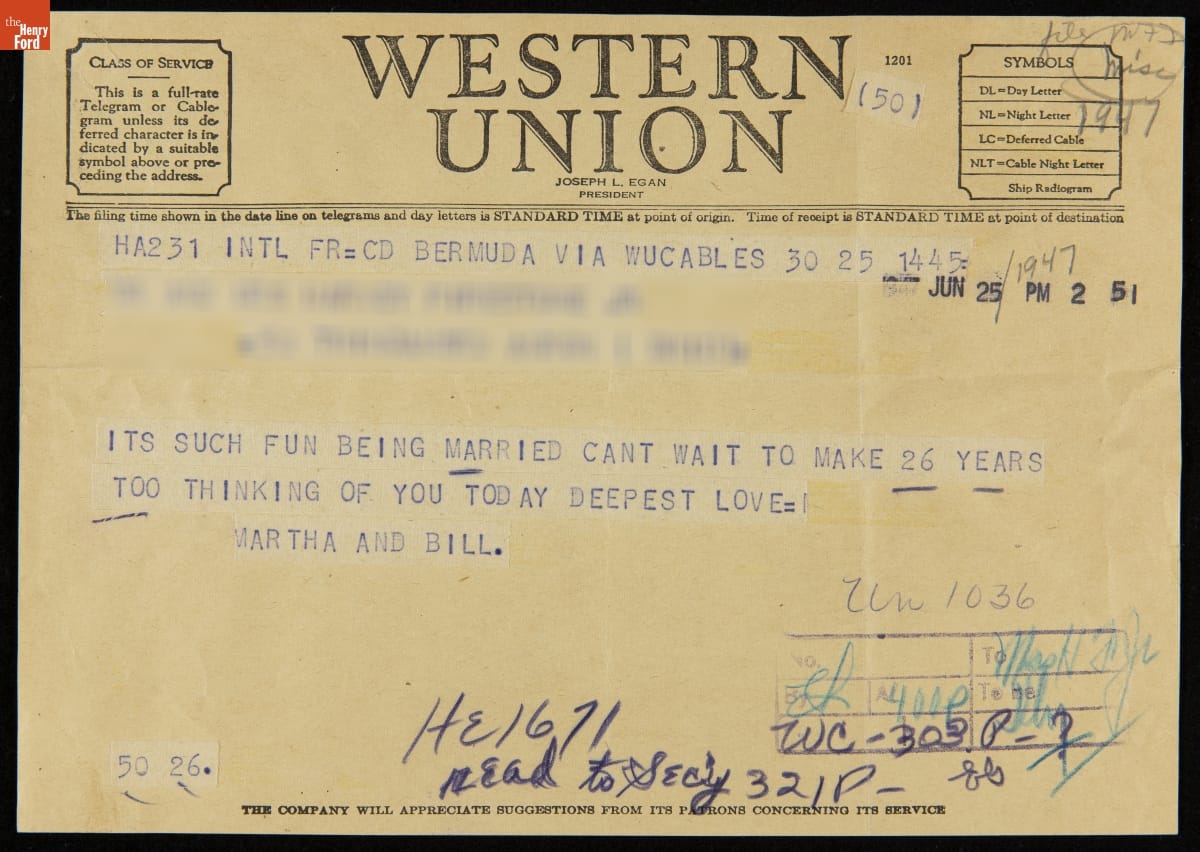 the
Henry
Ford
CLASS OF SERVICE
This is a full-rate
Telegram or Cable-
gram unless its de-
ferred character is in-
dicated by a suitable
symbol above or pre-
ceding the address.
WESTERN
UNION
1201
(50)
JOSEPH L. EGAN
PRESIDENT
file
misc
1947
SYMBOLS
DL=Day Letter
NL=Night Letter
LC=Deferred Cable
NLT=Cable Night Letter
Ship Radiogram
The filing time shown in the date line on telegrams and day letters is STANDARD TIME at point of origin. Time of receipt is STANDARD TIME at point of destination
HA231 INTL FR=CD BERMUDA VIA WUCABLES 30 25 1445=
/1947
1947 JUN 25 PM 2 51
ITS SUCH FUN BEING MARRIED CANT WAIT TO MAKE 26 YEARS
TOO THINKING OF YOU TODAY DEEPEST LOVE=
MARTHA AND BILL.
Un 1036
No. To
By A 401P To be
WC-303 P-?
HE1671
read to Sec'y 321P-
50 26.
THE COMPANY WILL APPRECIATE SUGGESTIONS FROM ITS PATRONS CONCERNING ITS SERVICE